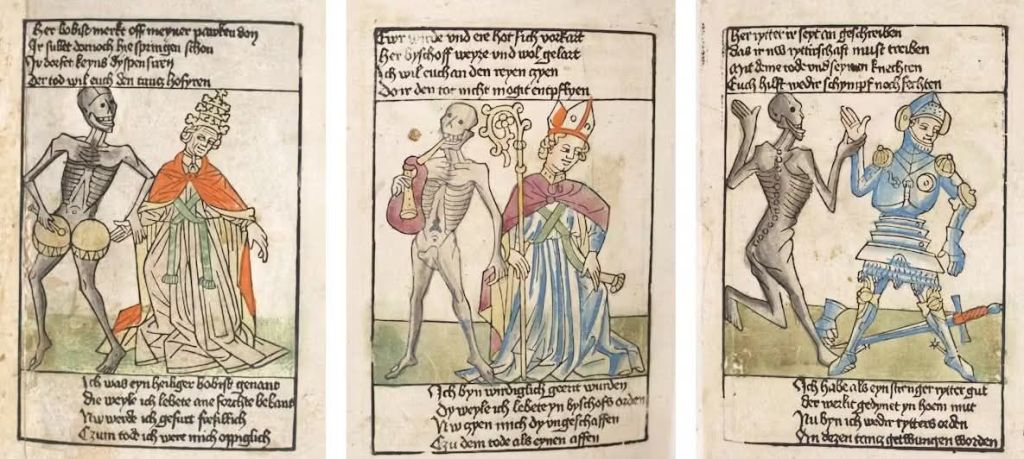 Her bobist merkt off meyner pawken don
Ir sullet dornoch hie springen schon
Ir dorfet keyns dyspensiren
Der tod wil euch den tantz hofiren
Ich was eyn heiliger bobist genant
Die weyle ich lebete ane forchte bekant
Nw werde ich gefurt freislich
Czum tode ich were mich oppiglich
Ewr wirde und ere hot sich vorkart
Her byschoff weyze und wol gelart
Ich wil euch an den reyen czyen
Do ir den tot nicht mogit entpflyen
Ich byn wirdiglich geert wurden
Dy weyle ich lebete yn byschofs orden
Nw czyen mich dy ungeschaffen
Czu dem tode als eynen affen
Her rytter ir seyt an geschreiben
Das ir nw rytterschaft must treiben
Mit deme tode und seynen knechten
Euch hilft wedir schympf noch fechten
Ich habe als eyn strenger rytter gut
Der werlt gedynet yn hoem mut
Nu byn ich wedir rytters orden
An dezen tantz getwungen worden